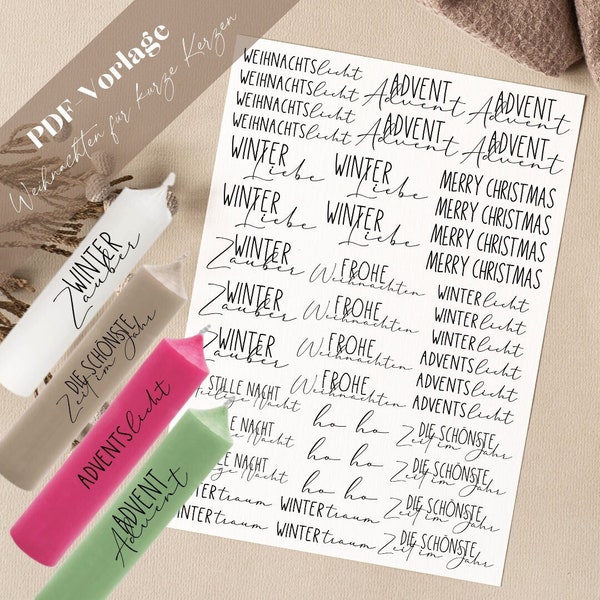 PDF-Vorlage
Weihnachten für kurze Kerzen
WEIHNACHTSlicht
WEIHNACHTSlicht
WEIHNACHTSlicht
WEIHNACHTSlicht
ADVENT
Advent
ADVENT
Advent
ADVENT
Advent
ADVENT
Advent
WINTER
Liebe
WINTER
Liebe
WINTER
Liebe
WINTER
Liebe
MERRY CHRISTMAS
MERRY CHRISTMAS
MERRY CHRISTMAS
MERRY CHRISTMAS
WINTER
Zauber
WINTER
Zauber
WINTER
Zauber
FROHE
Weihnachten
FROHE
Weihnachten
FROHE
Weihnachten
FROHE
Weihnachten
WINTERlicht
WINTERlicht
WINTERlicht
ADVENTSlicht
ADVENTSlicht
ADVENTSlicht
STILLE NACHT
Heilige Nacht
LLE NACHT
ige Nacht
LE NACHT
ge Nacht
ho ho
ho ho
ho ho
DIE SCHÖNSTE
Zeit im Jahr
DIE SCHÖNSTE
Zeit im Jahr
DIE SCHÖNSTE
Zeit im Jahr
DIE SCHÖNSTE
Zeit im Jahr
WINTERtraum
WINTERtraum
WINTERtraum
WINTERtraum
WINTER
Zauber
DIE SCHÖNSTE
Zeit im Jahr
ADVENTSlicht
ADVENT
Advent